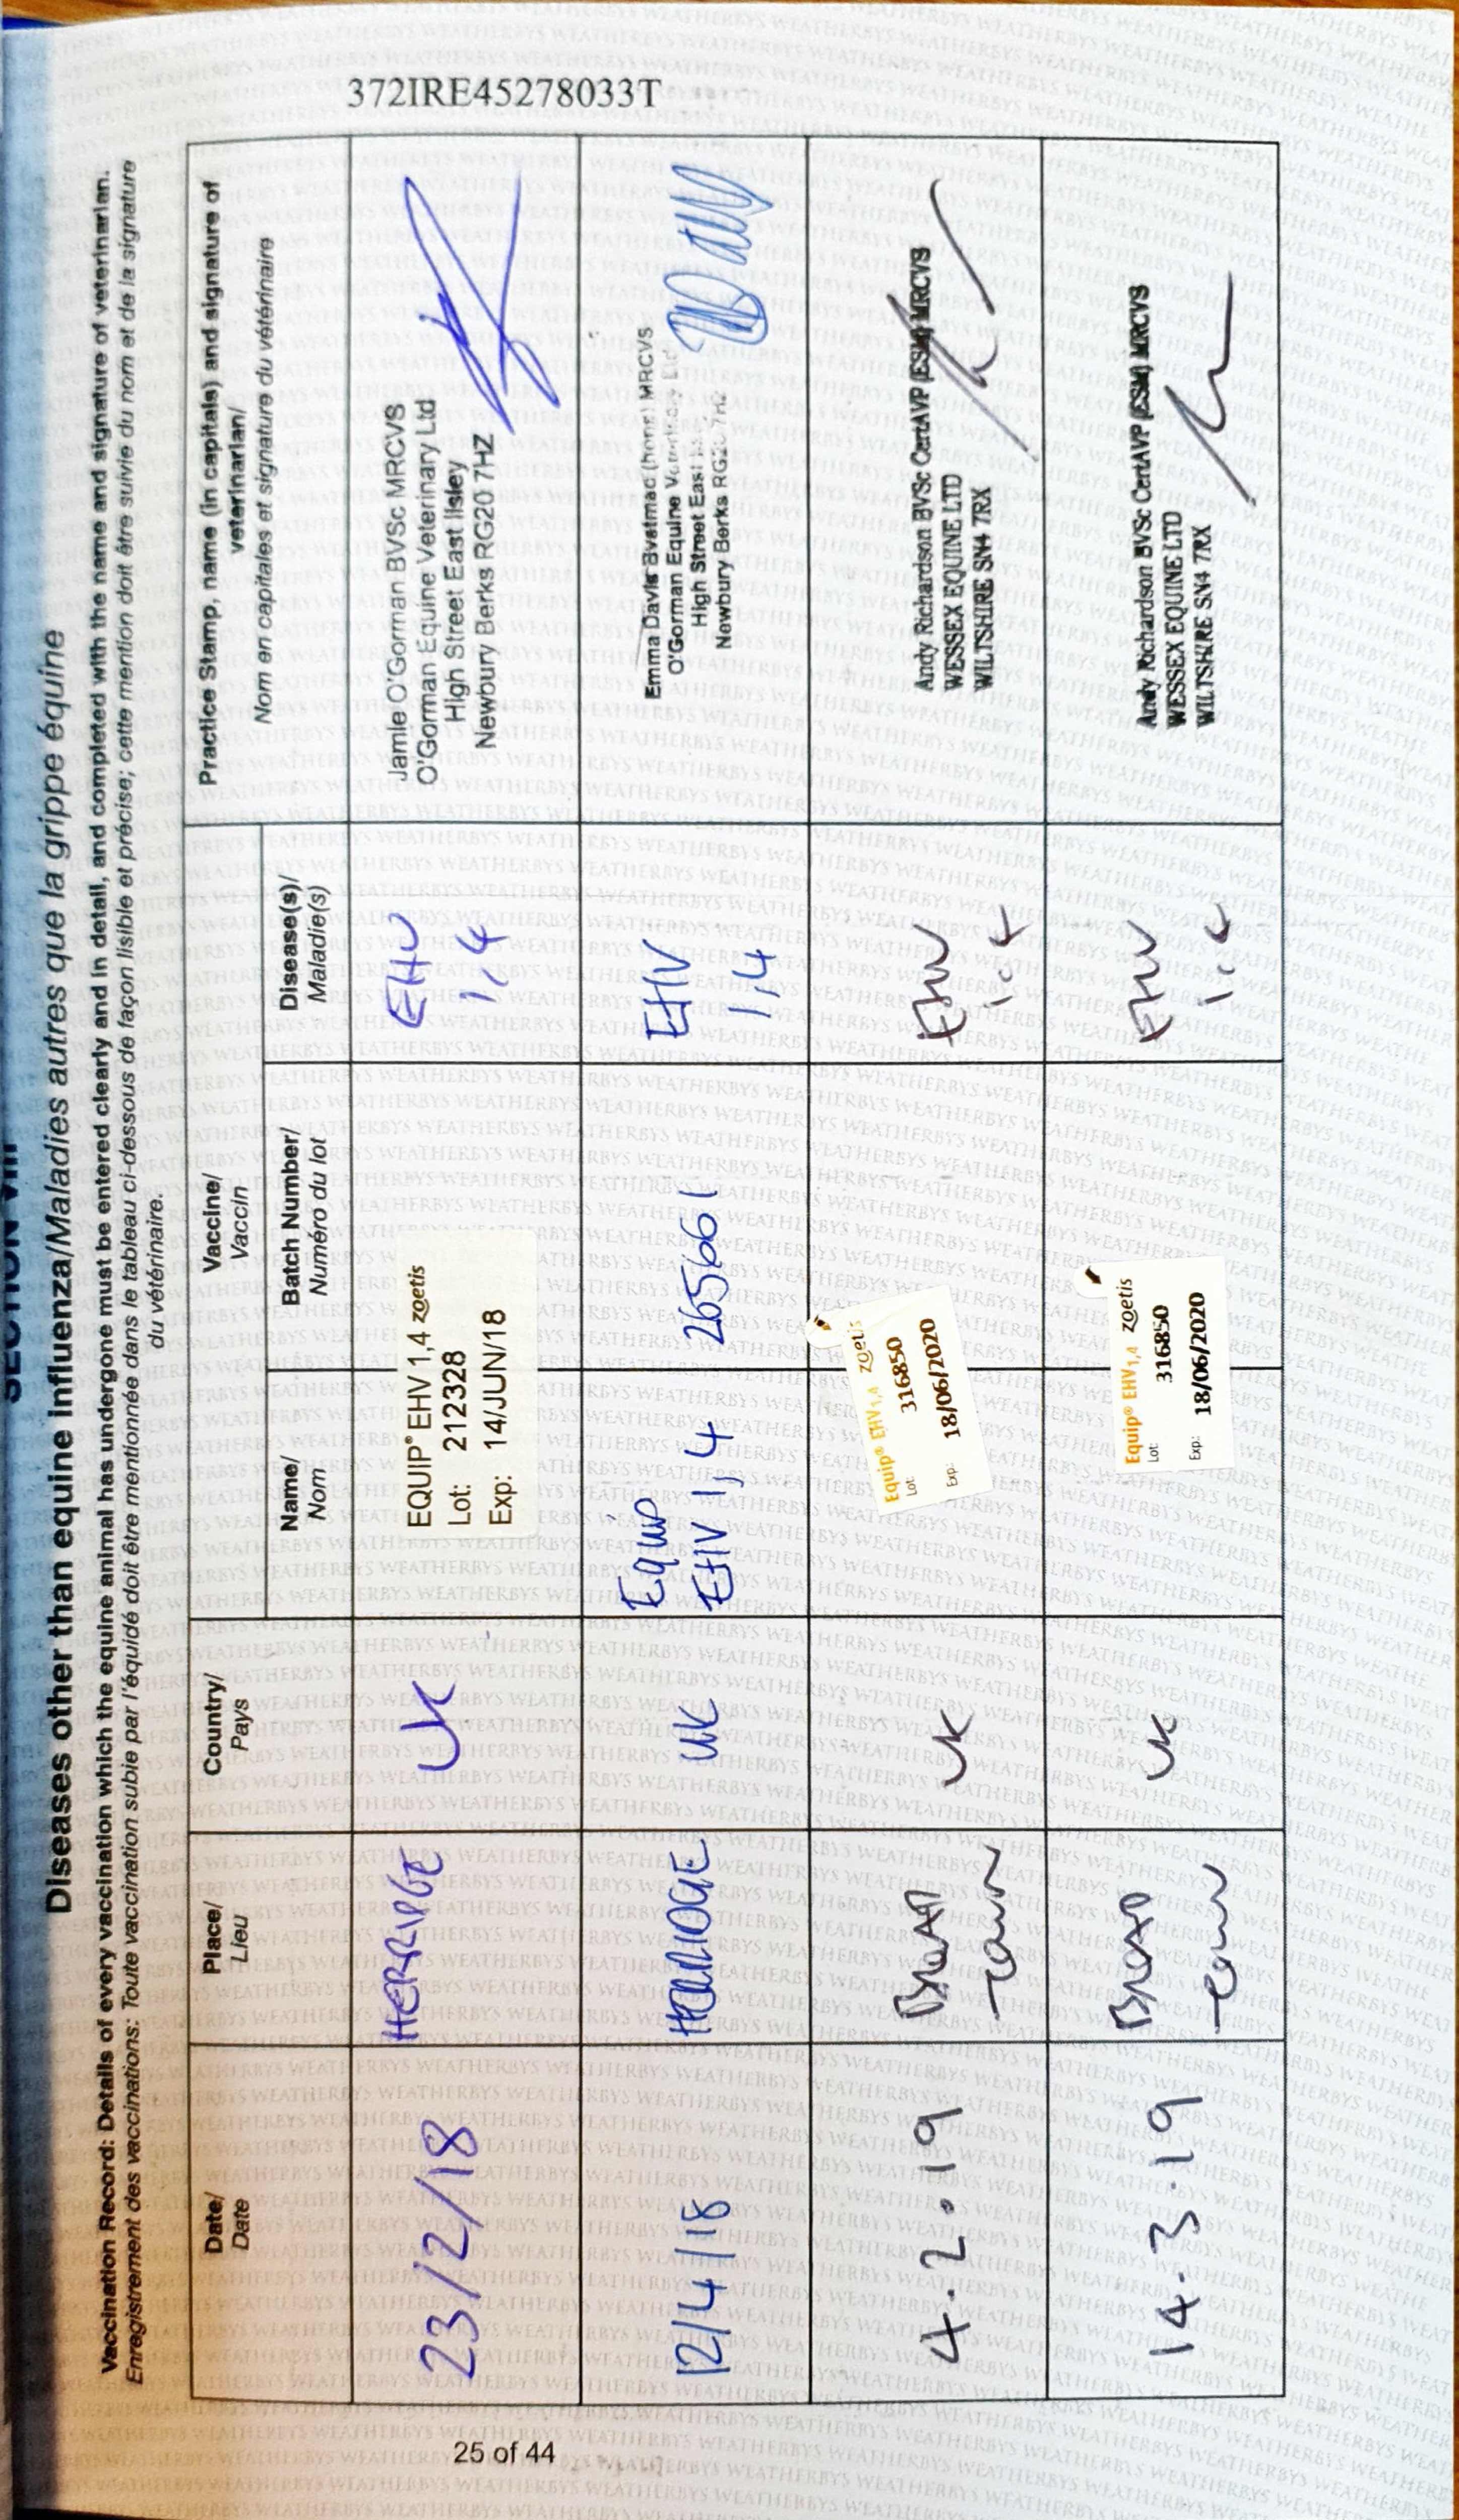 SECTION VIII
Diseases other than equine influenza/Maladies autres que la grippe équine
Vaccination Record: Details of every vaccination which the equine animal has undergone must be entered clearly and in detail, and completed with the name and signature of veterinarian.
Enregistrement des vaccinations: Toute vaccination subie par l'équidé doit être mentionnée dans le tableau ci-dessous de façon lisible et précise; cette mention doit être suivie du nom et de la signature
du vétérinaire.
372IRE45278033T
Date/
Date
Place/
Lieu
Country/
Pays
Vaccine/
Vaccin
Name/
Nom
Batch Number/
Numéro du lot
Disease(s)/
Maladie(s)
Practice Stamp, name (in capitals) and signature of
veterinarian/
Nom en capitales et signature du vétérinaire
23/2/18
HERRIDGE
UK
EQUIP® EHV 1,4 zoetis
Lot: 212328
Exp: 14/JUN/18
EHV
1,4
Jamie O'Gorman BVSc MRCVS
O'Gorman Equine Veterinary Ltd
High Street East Ilsley
Newbury Berks RG20 7HZ
12/4/18
HERRIDGE
UK
Equip
EHV 1,4
265661
EHV
1,4
Emma Davis Bvetmed (hons) MRCVS
O'Gorman Equine Veterinary Ltd
High Street East Ilsley
Newbury Berks RG20 7HZ
4.2.19
Broad
Town
UK
Equip® EHV1,4 zoetis
Lot: 316850
Exp: 18/06/2020
EHV
1,4
Andy Richardson BVSc CertAVP (ESM) MRCVS
WESSEX EQUINE LTD
WILTSHIRE SN4 7RX
14.3.19
Broad
Town
UK
Equip® EHV1,4 zoetis
Lot: 316850
Exp: 18/06/2020
EHV
1,4
Andy Richardson BVSc CertAVP (ESM) MRCVS
WESSEX EQUINE LTD
WILTSHIRE SN4 7RX
25 of 44